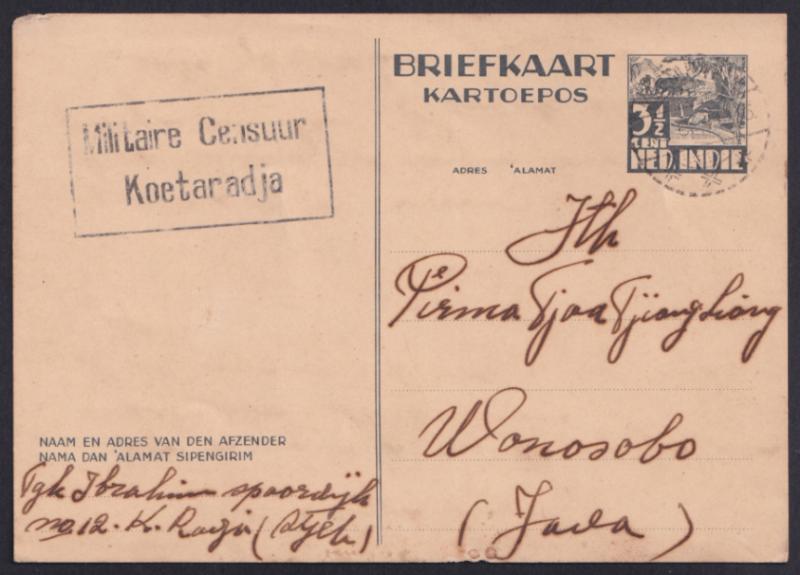 BRIEFKAART
KARTOEPOS
3½
CENT
NED. INDIE
Militaire Censuur
Koetaradja
ADRES 'ALAMAT
Jth
Pirma Tjoa Tjiong Liong
Wonosobo
(Java)
NAAM EN ADRES VAN DEN AFZENDER
NAMA DAN 'ALAMAT SIPENGIRIM
Tgk Ibrahim spoordijk
no 12. K. Radja (Atjeh)